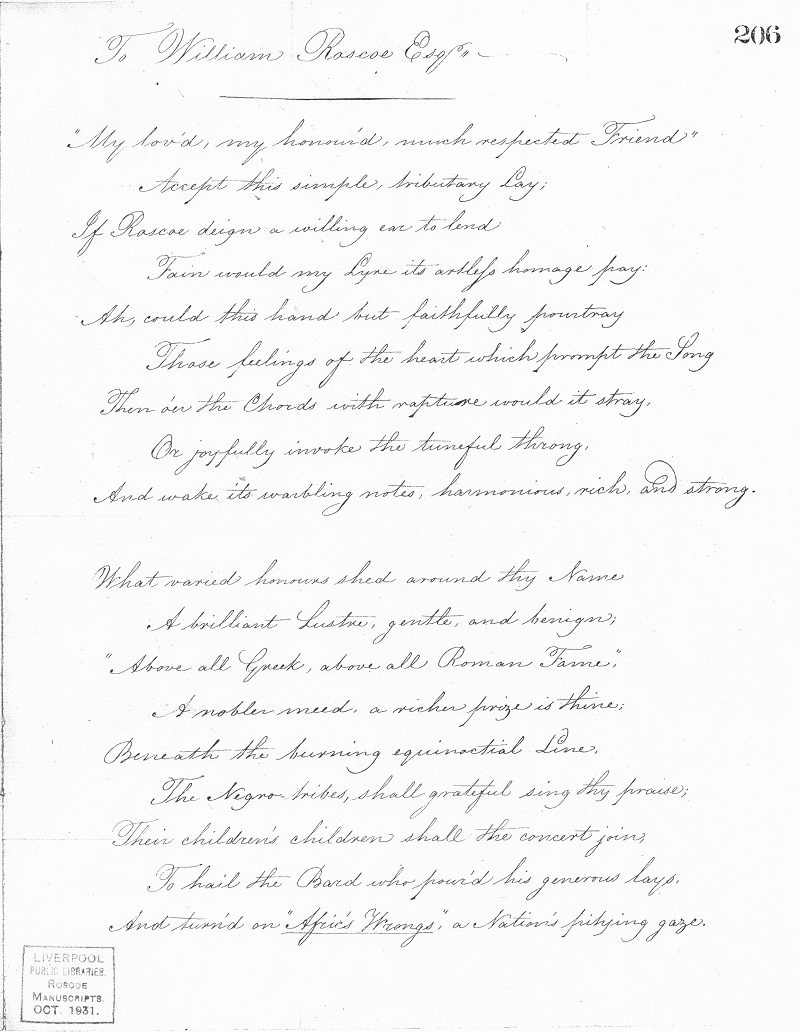 206
To William Roscoe Esqr"
"My lov'd, my honour'd, much respected Friend"
Accept this simple, tributary Lay;
If Roscoe deign a willing ear to lend
Fain would my Lyre its artless homage pay:
Ah, could this hand but faithfully pourtray
Those feelings of the heart which prompt the Song
Then o'er the Chords with rapture would it stray,
Or joyfully invoke the tuneful throng,
And wake its warbling notes, harmonious, rich, and strong.
What varied honours shed around thy Name
A brilliant Lustre, gentle, and benign;
"Above all Greek, above all Roman Fame",
A nobler meed, a richer prize is thine;
Beneath the burning equinoctial Line,
The Negro-tribes, shall grateful sing thy praise;
Their children's children shall the concert join,
To hail the Bard who pour'd his generous lays,
And turn'd on "Afric's Wrongs", a Nation's pitying gaze.
LIVERPOOL
PUBLIC LIBRARIES.
ROSCOE
MANUSCRIPTS.
OCT. 1931.